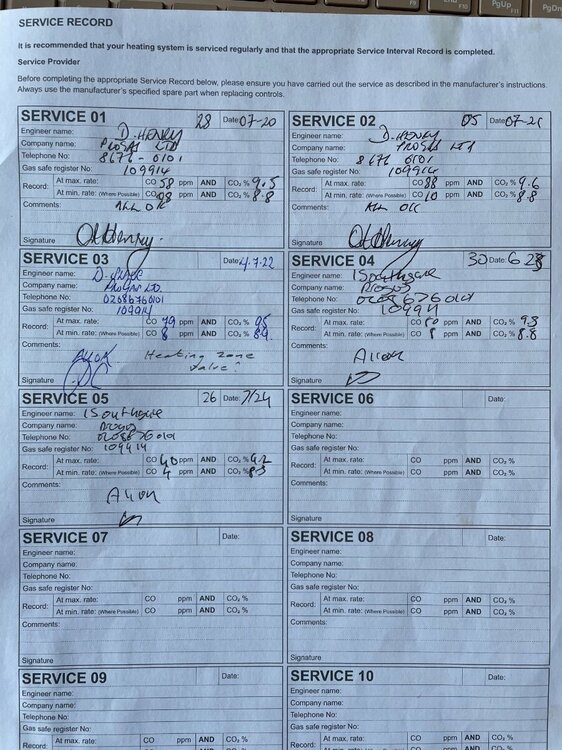 SERVICE RECORD
It is recommended that your heating system is serviced regularly and that the appropriate Service Interval Record is completed.
Service Provider
Before completing the appropriate Service Record below, please ensure you have carried out the service as described in the manufacturer's instructions.
Always use the manufacturer's specified spare part when replacing controls.
SERVICE 01 28 Date: 07-20
Engineer name: D. HENRY
Company name: PROGAS LTD
Telephone No: 8676-0101
Gas safe register No: 109914
Record: At max. rate: CO 58 ppm AND CO₂ % 9.5
At min. rate: (Where Possible) CO 08 ppm AND CO₂ % 8.8
Comments: ALL OK
Signature
SERVICE 02 05 Date: 07-21
Engineer name: D. HENRY
Company name: PROGAS LTD
Telephone No: 8676 0101
Gas safe register No: 109914
Record: At max. rate: CO 88 ppm AND CO₂ % 9.6
At min. rate: (Where Possible) CO 10 ppm AND CO₂ % 8.8
Comments: ALL OK
Signature
SERVICE 03 Date: 4.7.22
Engineer name: D.
Company name: Progas LTD.
Telephone No: 02086760101
Gas safe register No: 109914
Record: At max. rate: CO 79 ppm AND CO₂ %
At min. rate: (Where Possible) CO 8 ppm AND CO₂ %
Comments:
All OK Heating zone valve?
Signature
SERVICE 04 30 Date: 6 23
Engineer name: I Southgate
Company name: Progas
Telephone No: 0208 676 0101
Gas safe register No: 109914
Record: At max. rate: CO 80 ppm AND CO₂ % 9.3
At min. rate: (Where Possible) CO 8 ppm AND CO₂ % 8.8
Comments:
All OK
Signature
SERVICE 05 26 Date: 7/24
Engineer name: I Southgate
Company name: Progas
Telephone No: 0208676 0101
Gas safe register No: 109914
Record: At max. rate: CO 40 ppm AND CO₂ % 9.2
At min. rate: (Where Possible) CO 4 ppm AND CO₂ %
Comments:
All OK
Signature
SERVICE 06 Date:
Engineer name:
Company name:
Telephone No:
Gas safe register No:
Record: At max. rate: CO ppm AND CO₂ %
At min. rate: (Where Possible) CO ppm AND CO₂ %
Comments:
Signature
SERVICE 07 Date:
Engineer name:
Company name:
Telephone No:
Gas safe register No:
Record: At max. rate: CO ppm AND CO₂ %
At min. rate: (Where Possible) CO ppm AND CO₂ %
Comments:
Signature
SERVICE 08 Date:
Engineer name:
Company name:
Telephone No:
Gas safe register No:
Record: At max. rate: CO ppm AND CO₂ %
At min. rate: (Where Possible) CO ppm AND CO₂ %
Comments:
Signature
SERVICE 09 Date:
Engineer name:
Company name:
Telephone No:
Gas safe register No:
Record: At max. rate: CO ppm AND CO₂ %
SERVICE 10 Date:
Engineer name:
Company name:
Telephone No:
Gas safe register No:
Record: At max. rate: CO ppm AND CO₂ %